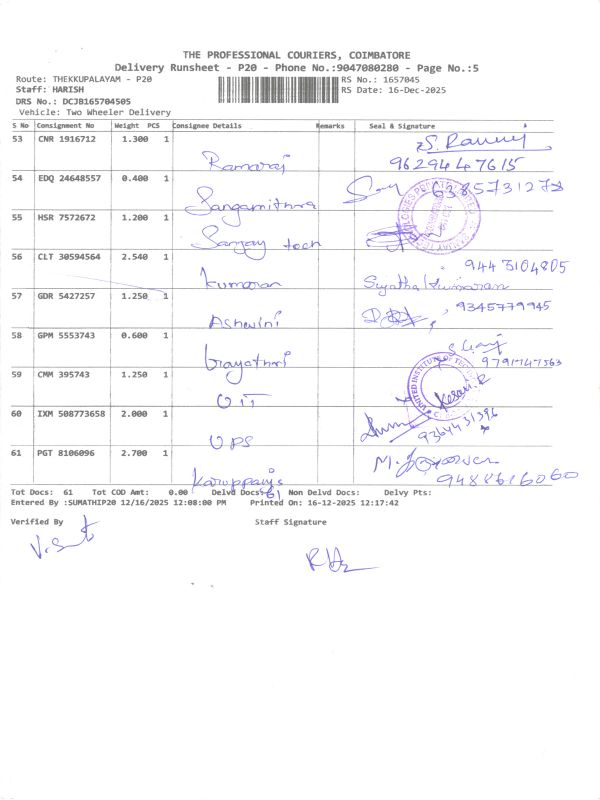 THE PROFESSIONAL COURIERS, COIMBATORE
Delivery Runsheet - P20 - Phone No.:9047080280 - Page No.:5
Route: THEKKUPALAYAM - P20 RS No.: 1657045
Staff: HARISH RS Date: 16-Dec-2025
DRS No.: DCJB165704505
Vehicle: Two Wheeler Delivery
S No Consignment No Weight PCS Consignee Details Remarks Seal & Signature
53 CNR 1916712 1.300 1
Ramaraj 9629447615
54 EDQ 24648557 0.400 1
Sangamithra 6385731273
55 HSR 7572672 1.200 1
Sanjay tech
56 CLT 30594564 2.540 1
Kumaran Sujatha Kumaran 9443104805
57 GDR 5427257 1.250 1
Ashwini 9345779945
58 GPM 5553743 0.600 1
Gayathri 9791747563
59 CMM 395743 1.250 1
UIT UNITED INSTITUTE OF Kesari.R
60 IXM 508773658 2.000 1
UPS 9364431396
61 PGT 8106096 2.700 1
9488616060
Tot Docs: 61 Tot COD Amt: 0.00 Delvd Docs: 61 Non Delvd Docs: Delvy Pts:
Entered By :SUMATHIP20 12/16/2025 12:08:00 PM Printed On: 16-12-2025 12:17:42
Verified By Staff Signature